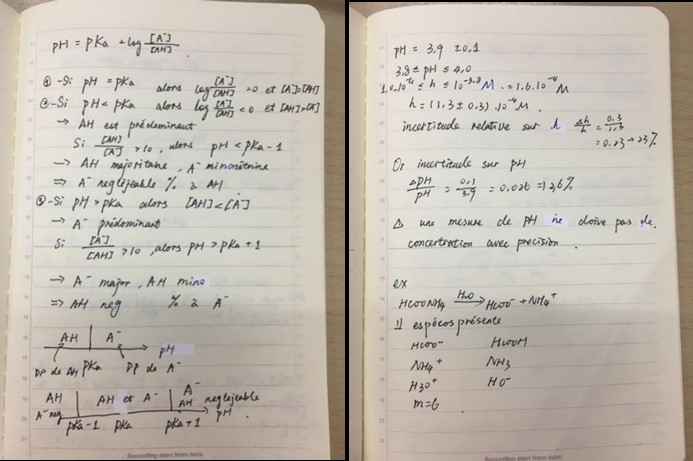 pH = pKa + log [A⁻]/[AH]
① -Si pH = pKa alors log [A⁻]/[AH] = 0 et [A⁻]=[AH]
② -Si pH < pKa alors log [A⁻]/[AH] < 0 et [AH]>[A⁻]
→ AH est prédominant
Si [AH]/[A⁻] > 10, alors pH < pKa - 1
→ AH majoritaire, A⁻ minoritaire
⇒ A⁻ negligeable % à AH
③ -Si pH > pKa alors [AH] < [A⁻]
→ A⁻ prédominant
Si [A⁻]/[AH] > 10, alors pH > pKa + 1
→ A⁻ major, AH mino
⇒ AH neg % à A⁻
AH A⁻
pH
DP de AH pKa DP de A⁻
AH AH et A⁻ A⁻
A⁻ neg AH neglejeable
pKa-1 pKa pKa+1 pH
pH = 3,9 ± 0,1
3,8 ≤ pH ≤ 4,0
1,0.10⁻⁴ ≤ h ≤ 10⁻³·⁸ M = 1.6.10⁻⁴ M
h = (1,3 ± 0,3) .10⁻⁴ M.
incertitude relative sur h Δh/h = 0.3/1.3
= 0.23 → 23%
Or incertitude sur pH
ΔpH/pH = 0.1/3.9 = 0.026 = 2,6%
Δ une mesure de pH ne doive pas de
concertration avec precision.
ex
HCOONH4 H2O→ HCOO⁻ + NH4⁺
1) espèces présente
HCOO⁻ HCOOH
NH4⁺ NH3
H3O⁺ HO⁻
m=6